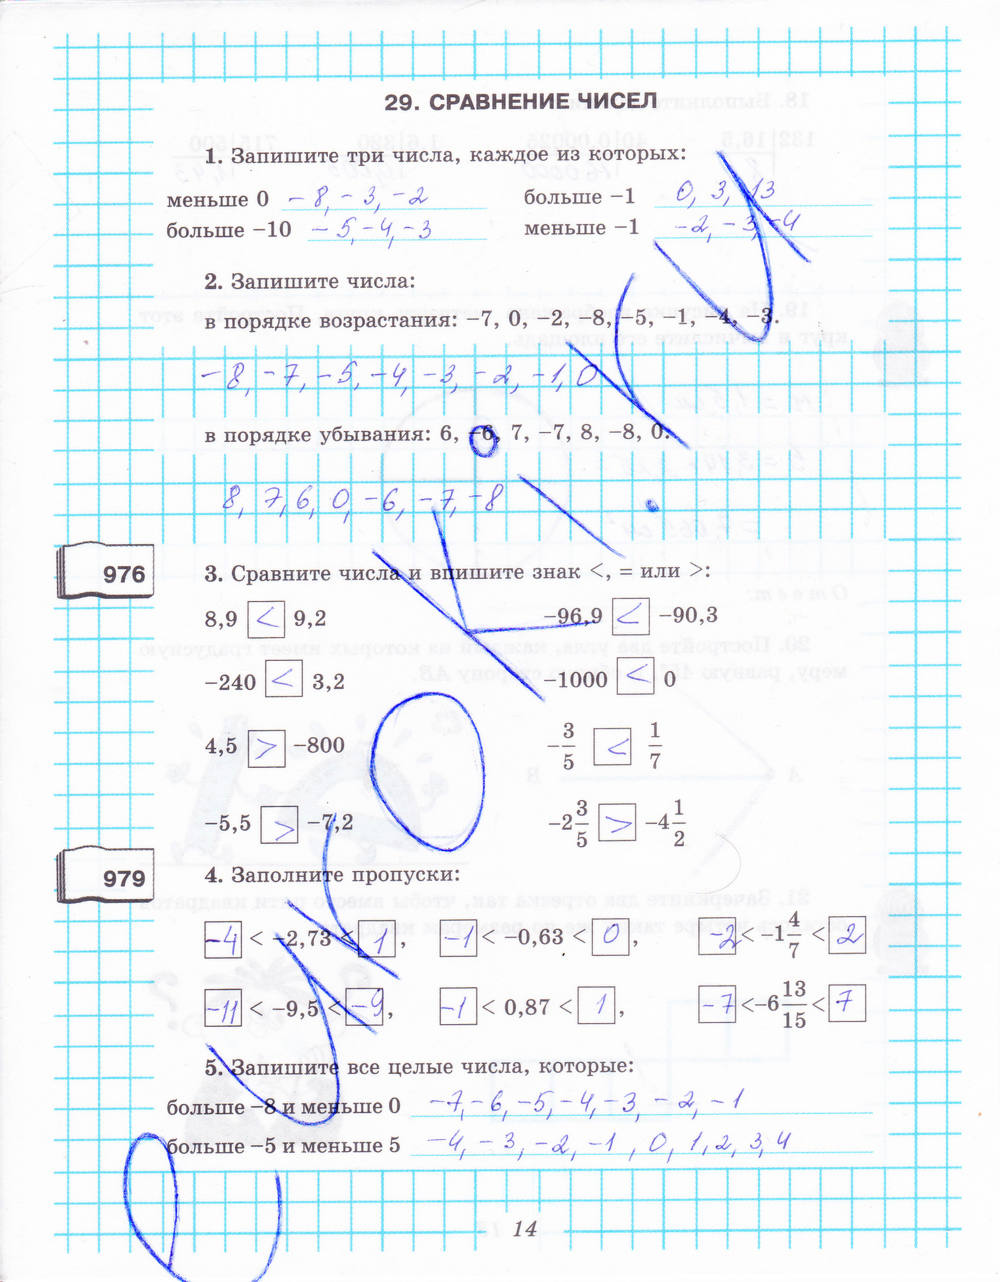 29. СРАВНЕНИЕ ЧИСЕЛ
1. Запишите три числа, каждое из которых:
меньше 0 −8, −3, −2 больше −1 0, 3, 13
больше −10 −5, −4, −3 меньше −1 −2, −3, −4
2. Запишите числа:
в порядке возрастания: −7, 0, −2, −8, −5, −1, −4, −3.
−8, −7, −5, −4, −3, −2, −1, 0
в порядке убывания: 6, −6, 7, −7, 8, −8, 0.
8, 7, 6, 0, −6, −7, −8
976
3. Сравните числа и впишите знак <, = или >:
8,9 < 9,2 −96,9 < −90,3
−240 < 3,2 −1000 < 0
4,5 > −800 −3/5 < 1/7
−5,5 > −7,2 −2 3/5 > −4 1/2
979
4. Заполните пропуски:
−4 < −2,73 < 1, −1 < −0,63 < 0, −2 < −1 4/7 < 2
−11 < −9,5 < −9, −1 < 0,87 < 1, −7 < −6 13/15 < 7
5. Запишите все целые числа, которые:
больше −8 и меньше 0 −7, −6, −5, −4, −3, −2, −1
больше −5 и меньше 5 −4, −3, −2, −1, 0, 1, 2, 3, 4
14